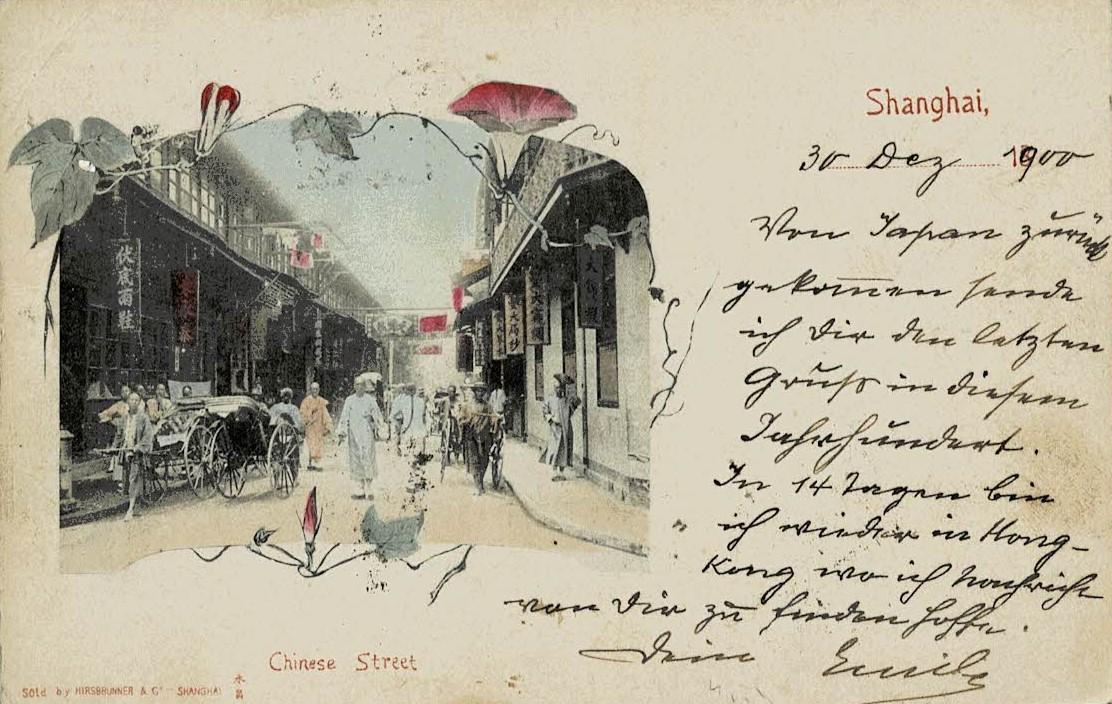 Shanghai,
30 Dez 1900
Von Japan zurück
gekom̅en sende
ich Dir den letzten
Gruß in diesem
Jahrhundert.
In 14 Tagen bin
ich wieder in Hong-
Kong wo ich Nachricht
von Dir zu finden hoffe.
Dein Emil
Chinese Street
Sold by HIRSBRUNNER & Co SHANGHAI